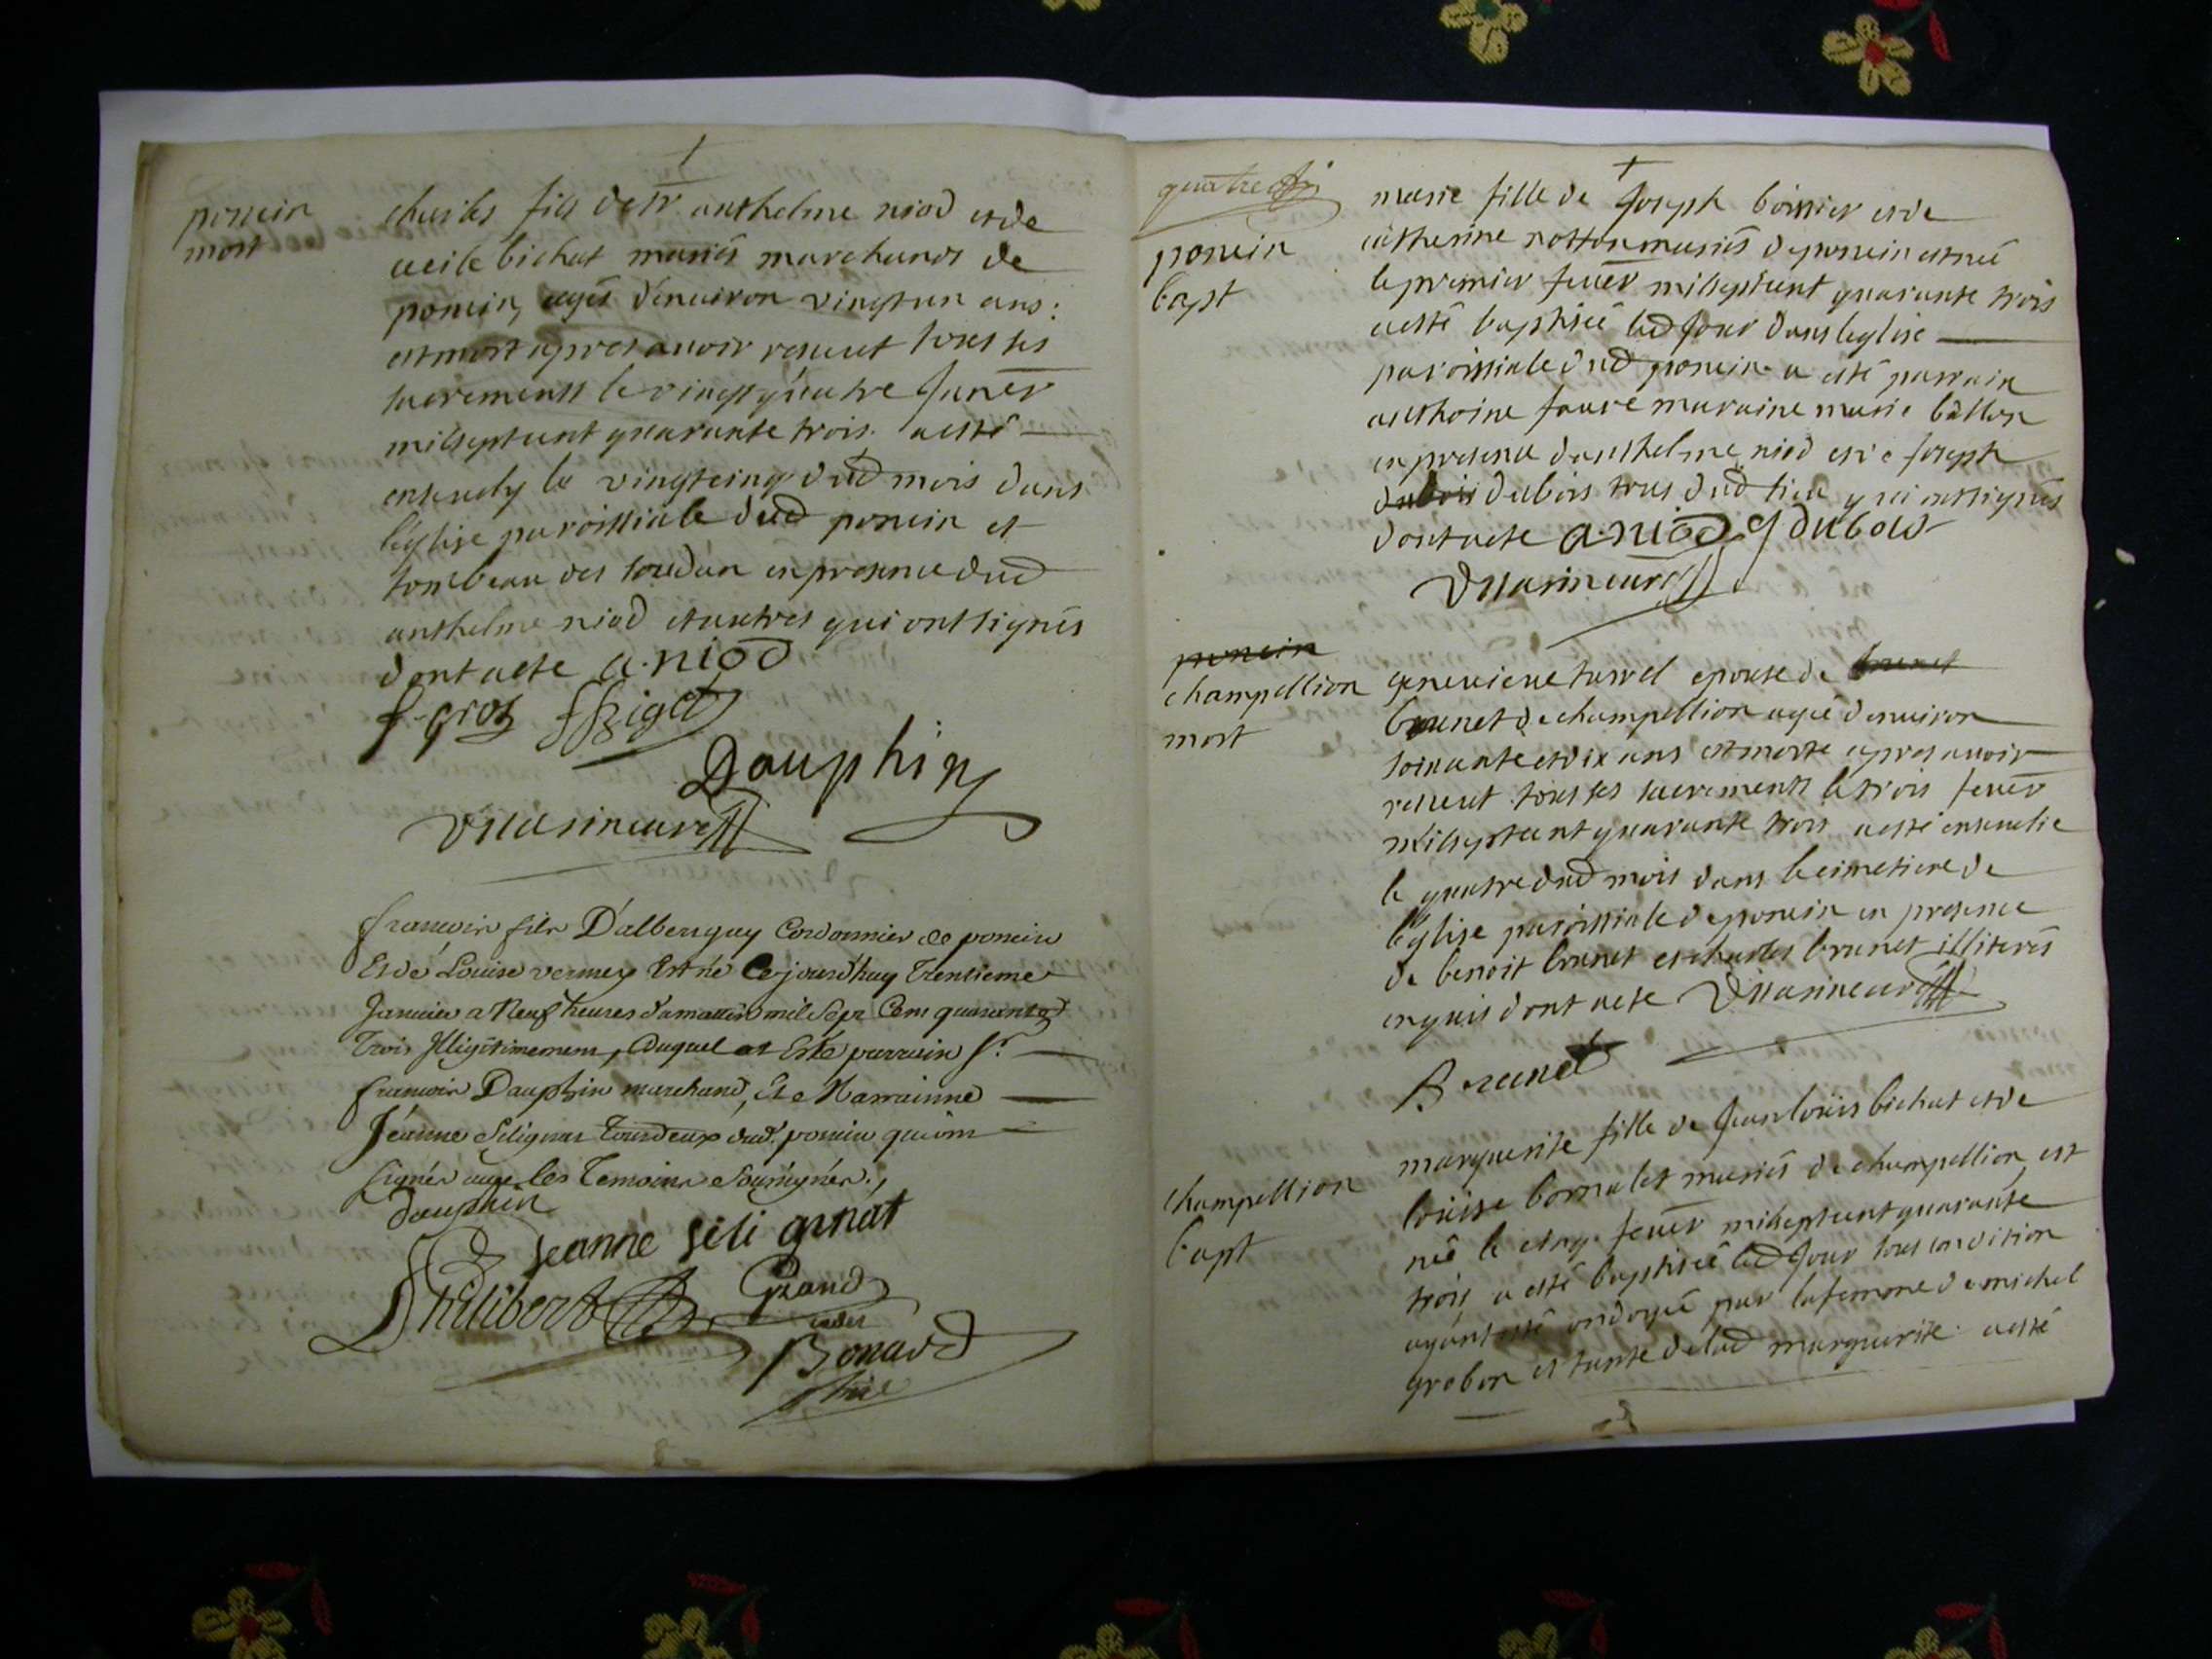 poncin
mort
charles fils de sr. anthelme niod et de
cecile bichat mariés marchands de
poncin, agés d'enuiron vingt un ans:
est mort apres auoir receut tous ses
sacrements le vingt quatre Janér
mil sept cent quarante trois. a esté
enseuely le vingt cinq dud mois dans
l'eglise paroissiale dud poncin et
tombeau des in presence dud
anthelme niod et autres qui ont signés
dont acte a. niod
f. gros
Dauphin
francois fils D'alberguy Cordonnier de poncin
Et de Louise vermex Est né Cejourd'huy Trentieme
Januier a Neuf heures du matin mil Sept Cent quarante
Trois Illigitimement, Duquel at Esté parrain Sr.
francois Dauphin marchand, Et Marrainne
Jéanne Selignat Tous deux dud. poncin qui ont
Signés auec les Temoins Sousignés.,
dauphin
Jeanne seli gnat
Philibert
Grand
Bonard
quatre
poncin
bapt
marie fille de Joseph boissier et de
catherine notton mariés de poncin est née
le premier feuér mil sept cent quarante trois
a esté baptisée led Jour dans leglise
paroissiale dud poncin a esté parrain
anthoine faure maraine marie ballon
en presence d'anthelme niod et de Joseph
dubois dubois tous dud lieu qui ont signés
dont acte a. niod J dubois
poncin
champellion
mort
geneuieue tarrel epouse de brunet
brunet de champellion agée d'enuiron
soixante et dix ans est morte apres auoir
receut tous ses sacrements le trois feuér
mil sept cent quarante trois a esté enseuelie
le quatre dud mois dans le cimetiere de
l'eglise paroissiale de poncin en presence
de benoit brunet et charles brunet illiterés
enquis dont acte
Brunet
champellion
bapt
marguerite fille de Jean louis bichat et de
louise bornalet mariés de champellion, est
née le cinq feuér mil sept cent quarante
trois a esté baptisée led Jour sous condition
ayant esté ondoyée par la femme de michel
grobon et tante de lad marguerite. a esté